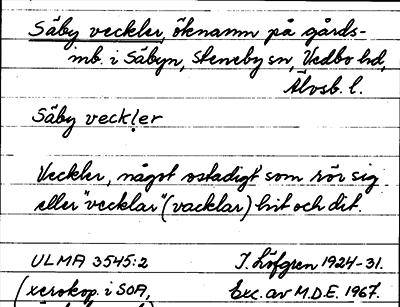 Säby veckler, öknamn på gårds-
inb. i Säbyn, Steneby sn, Vedbo hd,
Älvsb. l.
Säby veckḷer
Veckler, något ostadigt som rör sig
eller "vecklar" (vacklar) hit och dit.
ULMA 3545:2 J. Löfgren 1924-31.
(xerokop. i SOA, Exc. av M.D.E. 1967.